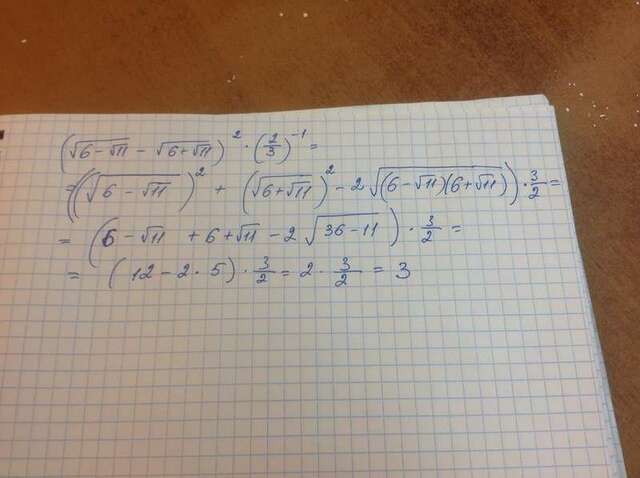 (√(6-√11) - √(6+√11))² · (2/3)⁻¹ =
= ((√(6-√11))² + (√(6+√11))² - 2√((6-√11)(6+√11))) · 3/2 =
= (6-√11 + 6+√11 - 2√(36-11)) · 3/2 =
= (12-2·5) · 3/2 = 2 · 3/2 = 3